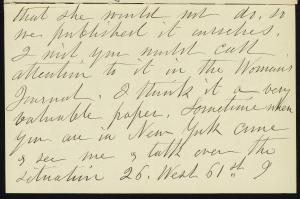 that she would not do, so
we published it ourselves.
I wish you would call
attention to it in the Woman's
Journal. I think it a very
valuable paper. Sometime when
you are in New York come
& see me & talk over the
situation 26. West 61st 9